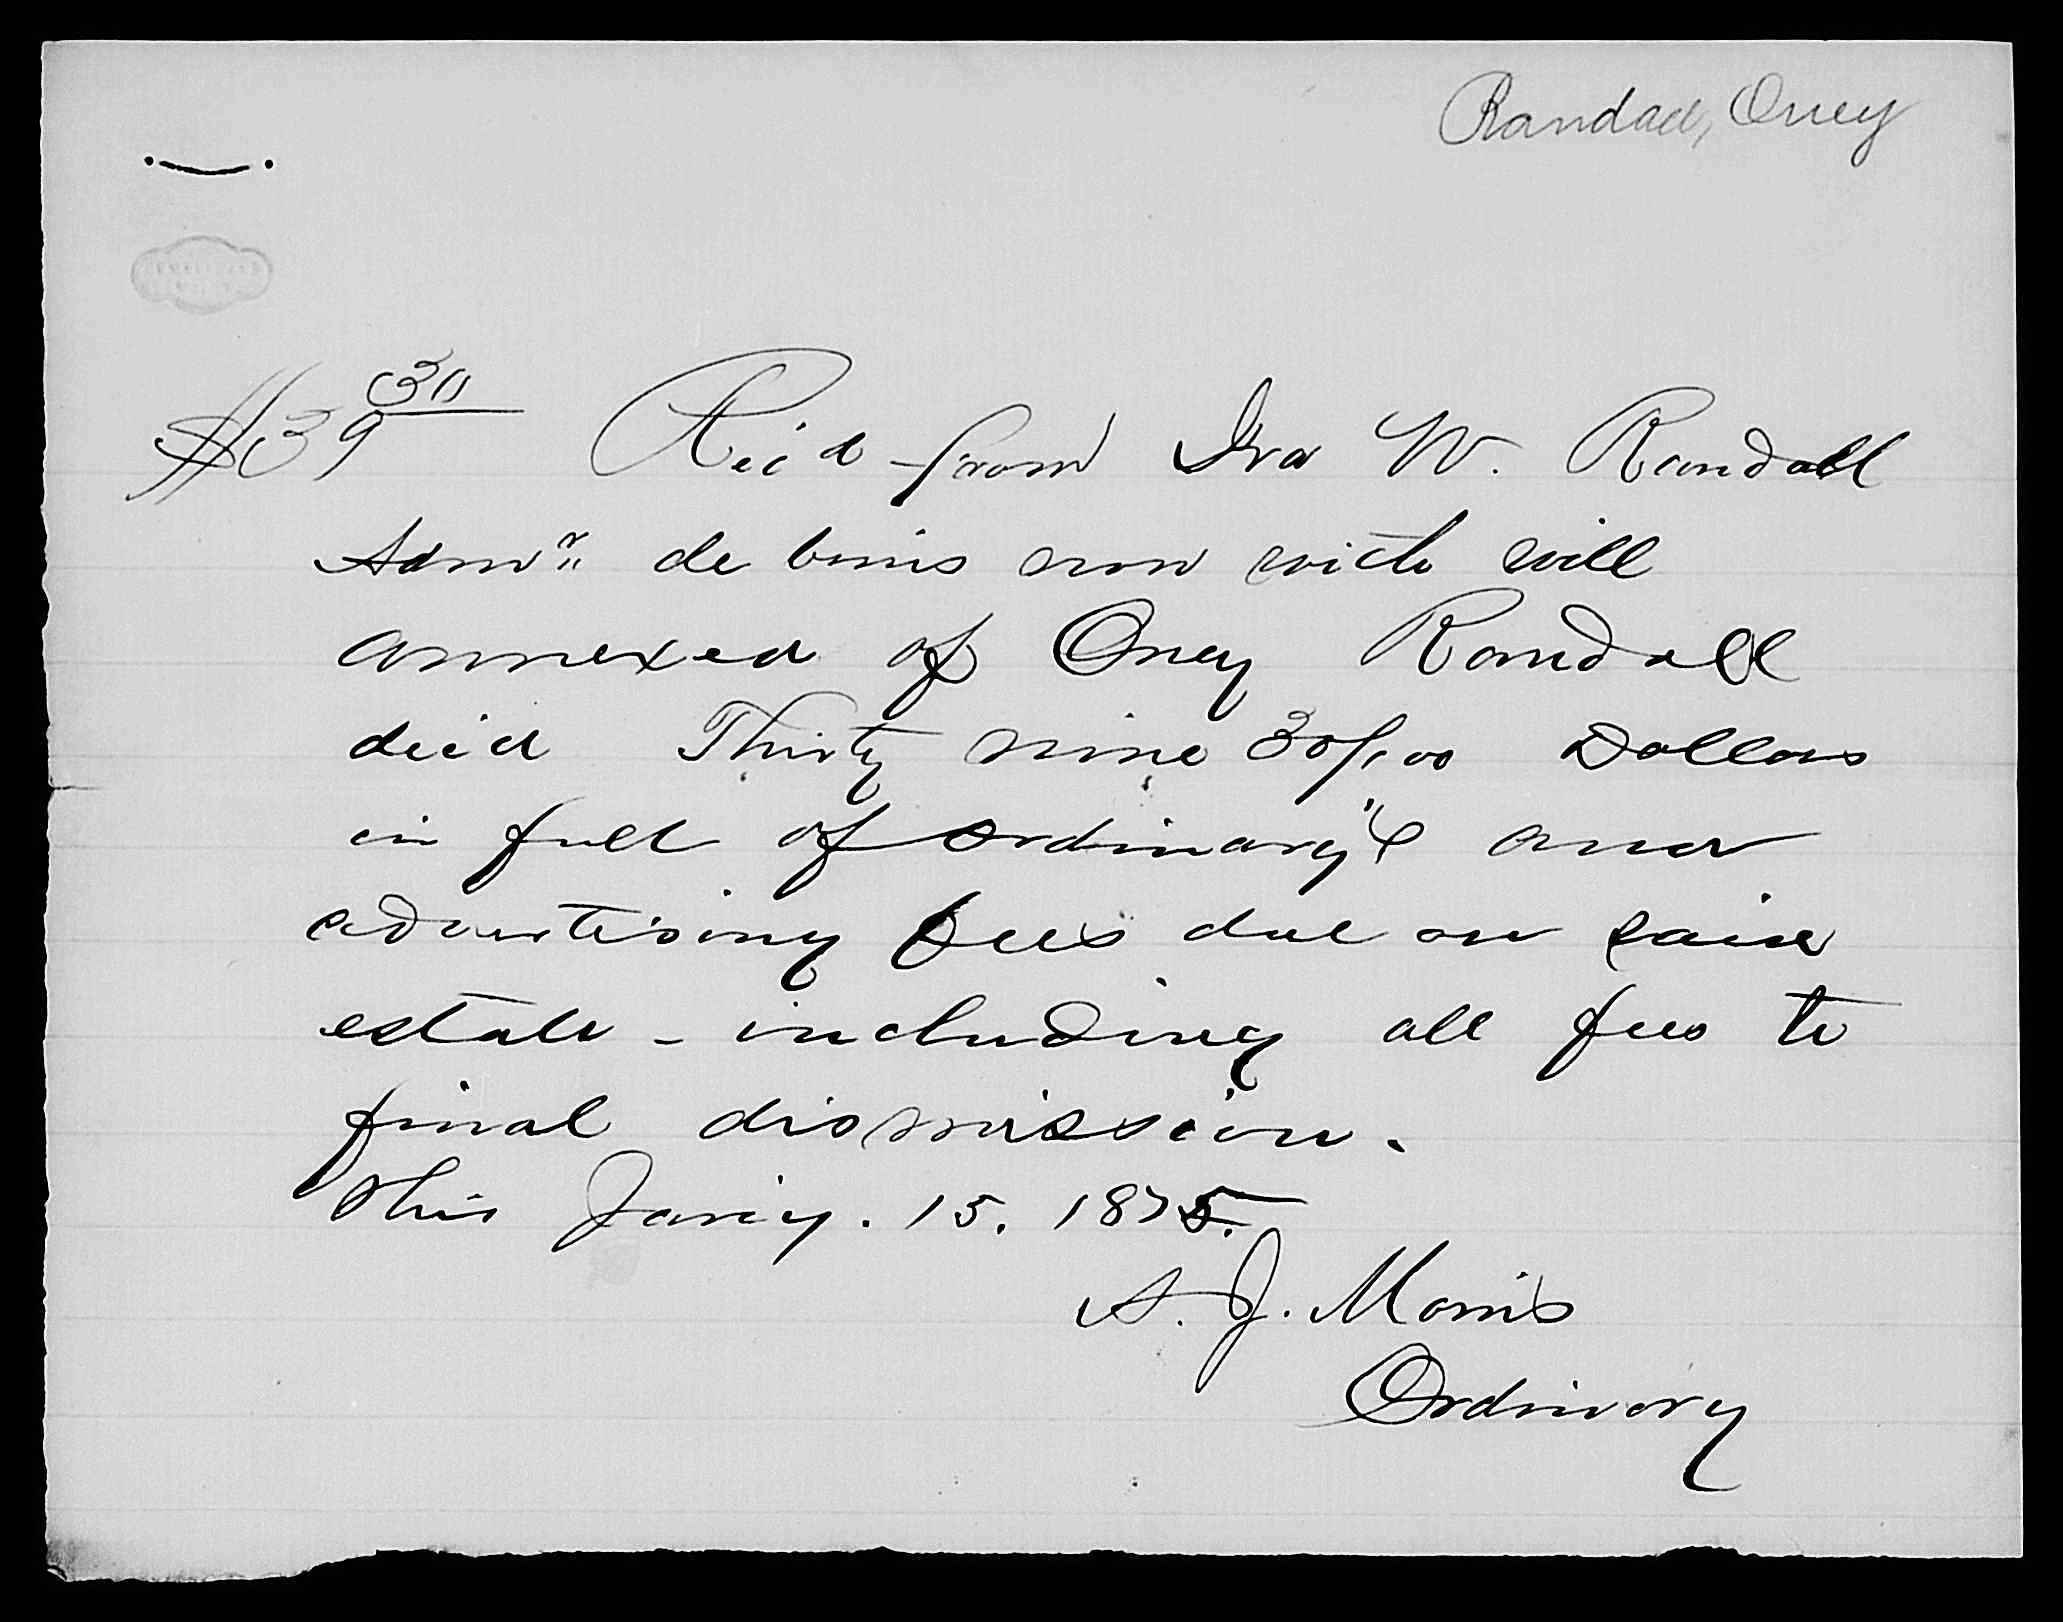 Randall, Oney
$39 30 Rec'd from Ira W. Randall
Admr. de bonis non with will
annexed of Oney Randall
dec'd Thirty nine 30/100 Dollars
in full of ordinary's and
advertising fees due on said
estate - including all fees to
final dismission.
This Jan'y. 15. 1875.
A. J. Morris
Ordinary